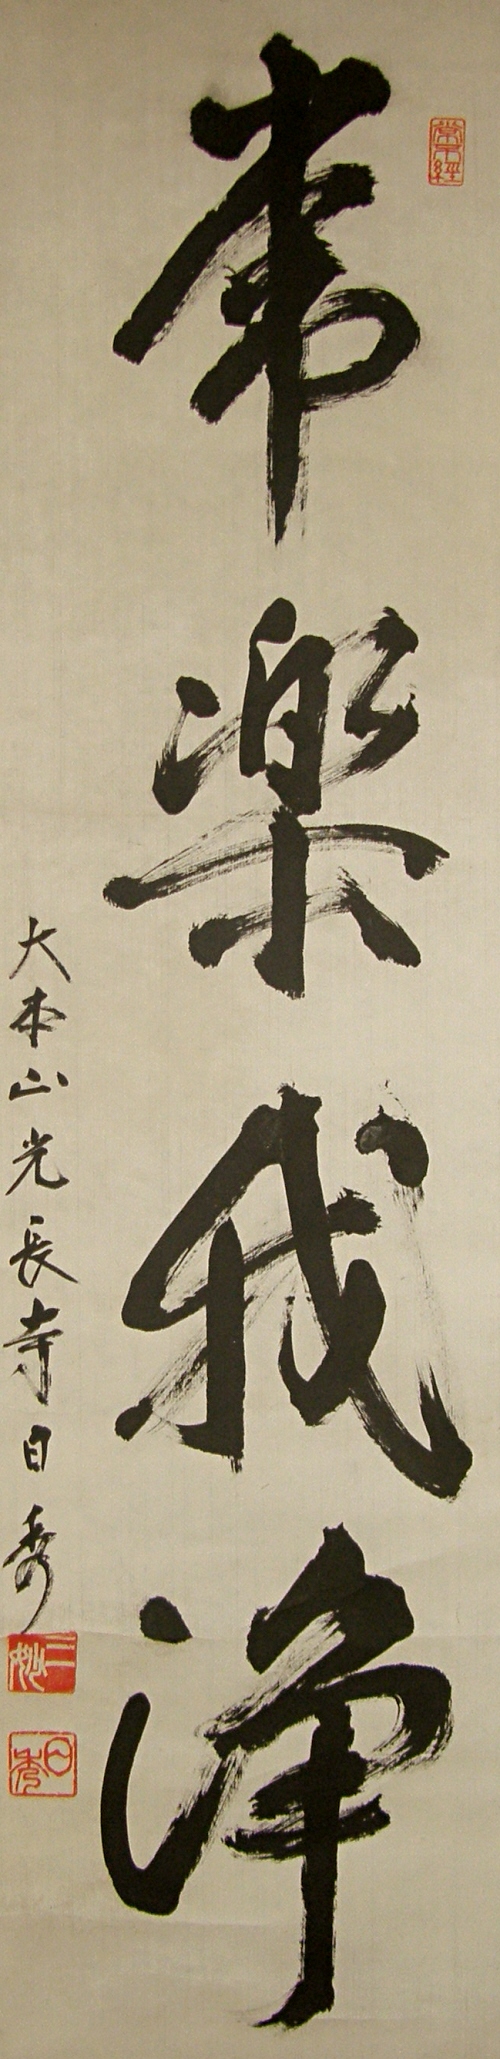 常楽我浄
大本山光長寺日秀
三妙
日秀